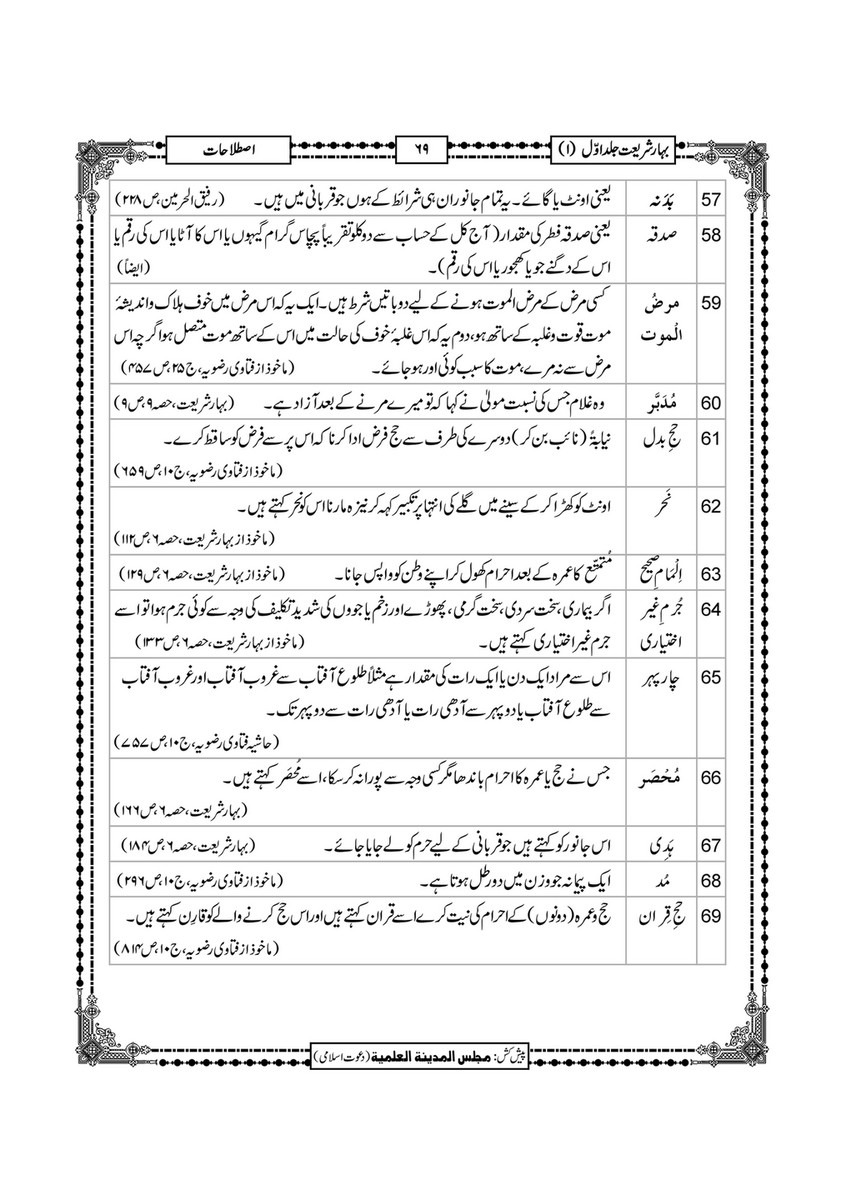 بہارِ شریعت جلد اوّل (۱)
۶۹
اصطلاحات
57 بَدَنہ یعنی اونٹ یا گائے۔ یہ تمام جانور ان ہی شرائط کے ہوں جو قربانی میں ہیں۔ (رفیق الحرمین، ص ۲۲۸)
58 صدقہ یعنی صدقہ فطر کی مقدار (آج کل کے حساب سے دو کلو تقریباً پچاس گرام گیہوں یا اس کا آٹا یا اس کی رقم یا
اس کے دگنے جو یا کھجور یا اس کی رقم)۔ (ایضاً)
59 مرضُ کسی مرض کے مرض الموت ہونے کے لیے دو باتیں شرط ہیں۔ ایک یہ کہ اس مرض میں خوف ہلاک و اندیشۂ
الْموت موت قوت و غلبہ کے ساتھ ہو، دوم یہ کہ اس غلبۂ خوف کی حالت میں اس کے ساتھ موت متصل ہو اگرچہ اس
مرض سے نہ مرے، موت کا سبب کوئی اور ہو جائے۔ (ماخوذ از فتاوی رضویہ، ج ۲۵، ص ۴۵۷)
60 مُدَبَّر وہ غلام جس کی نسبت مولیٰ نے کہا کہ تو میرے مرنے کے بعد آزاد ہے۔ (بہار شریعت، حصہ ۹، ص ۹)
61 حجِ بدل نیابۃً (نائب بن کر) دوسرے کی طرف سے حج فرض ادا کرنا کہ اس پر سے فرض کو ساقط کرے۔
(ماخوذ از فتاوی رضویہ، ج ۱۰، ص ۶۵۹)
62 نَحر اونٹ کو کھڑا کر کے سینے میں گلے کی انتہا پر تکبیر کہہ کر نیزہ مارنا اس کو نحر کہتے ہیں۔
(ماخوذ از بہار شریعت، حصہ ۶، ص ۱۱۲)
63 اِلْمامِ صحیح مُتمتِّع کا عمرہ کے بعد احرام کھول کر اپنے وطن کو واپس جانا۔ (ماخوذ از بہار شریعت، حصہ ۶، ص ۱۲۹)
64 جُرمِ غیر اگر بیماری، سخت سردی، سخت گرمی، پھوڑے اور زخم یا جووں کی شدید تکلیف کی وجہ سے کوئی جرم ہوا تو اسے
اختیاری جرم غیر اختیاری کہتے ہیں۔ (ماخوذ از بہار شریعت، حصہ ۶، ص ۱۳۳)
65 چار پہر اس سے مراد ایک دن یا ایک رات کی مقدار ہے مثلاً طلوع آفتاب سے غروب آفتاب اور غروب آفتاب
سے طلوع آفتاب یا دوپہر سے آدھی رات یا آدھی رات سے دوپہر تک۔
(حاشیہ فتاوی رضویہ، ج ۱۰، ص ۷۵۷)
66 مُحْصَر جس نے حج یا عمرہ کا احرام باندھا مگر کسی وجہ سے پورا نہ کر سکا، اسے مُحصَر کہتے ہیں۔
(بہار شریعت، حصہ ۶، ص ۱۶۶)
67 ہَدِی اس جانور کو کہتے ہیں جو قربانی کے لیے حرم کو لے جایا جائے۔ (بہار شریعت، حصہ ۶، ص ۱۸۴)
68 مُد ایک پیمانہ جو وزن میں دو رطل ہوتا ہے۔ (ماخوذ از فتاوی رضویہ، ج ۱۰، ص ۲۹۶)
69 حجِ قِران حج و عمرہ (دونوں) کے احرام کی نیت کرے اسے قران کہتے ہیں اور اس حج کرنے والے کو قارِن کہتے ہیں۔
(ماخوذ از فتاوی رضویہ، ج ۱۰، ص ۸۱۴)
پیش کش: مجلس المدینۃ العلمیۃ (دعوتِ اسلامی)